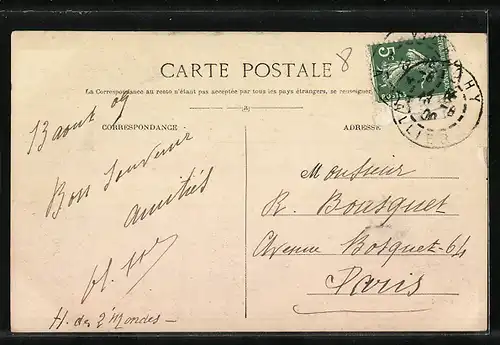 8
CARTE POSTALE
La Correspondance au recto n'étant pas acceptée par tous les pays étrangers, se renseigner
CORRESPONDANCE
ADRESSE
13 août 09
Bon Souvenir
Amitiés
H. des 2 Mondes —
Monsieur
R. Bousquet
Avenue Bosquet - 64
Paris
5